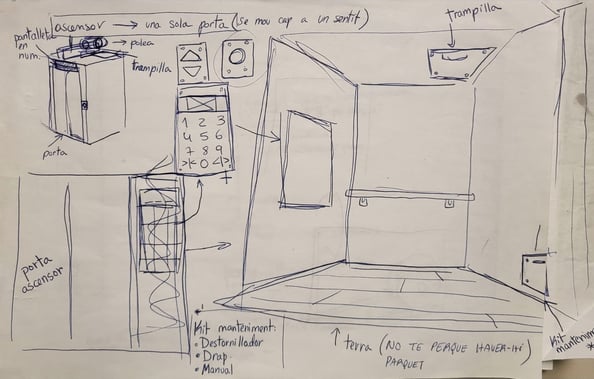 ascensor → una sola porta (se mou cap a un sentit)
pantalleta
en
num.
polea
trampilla
porta
trampilla
1 2 3
4 5 6
7 8 9
>|< 0 <|>
porta
ascensor
Kit manteniment:
• Destornillador
• Drap
• Manual
terra (NO TE PERQUE HAVER-HI
PARQUET
Kit
manteniment
*